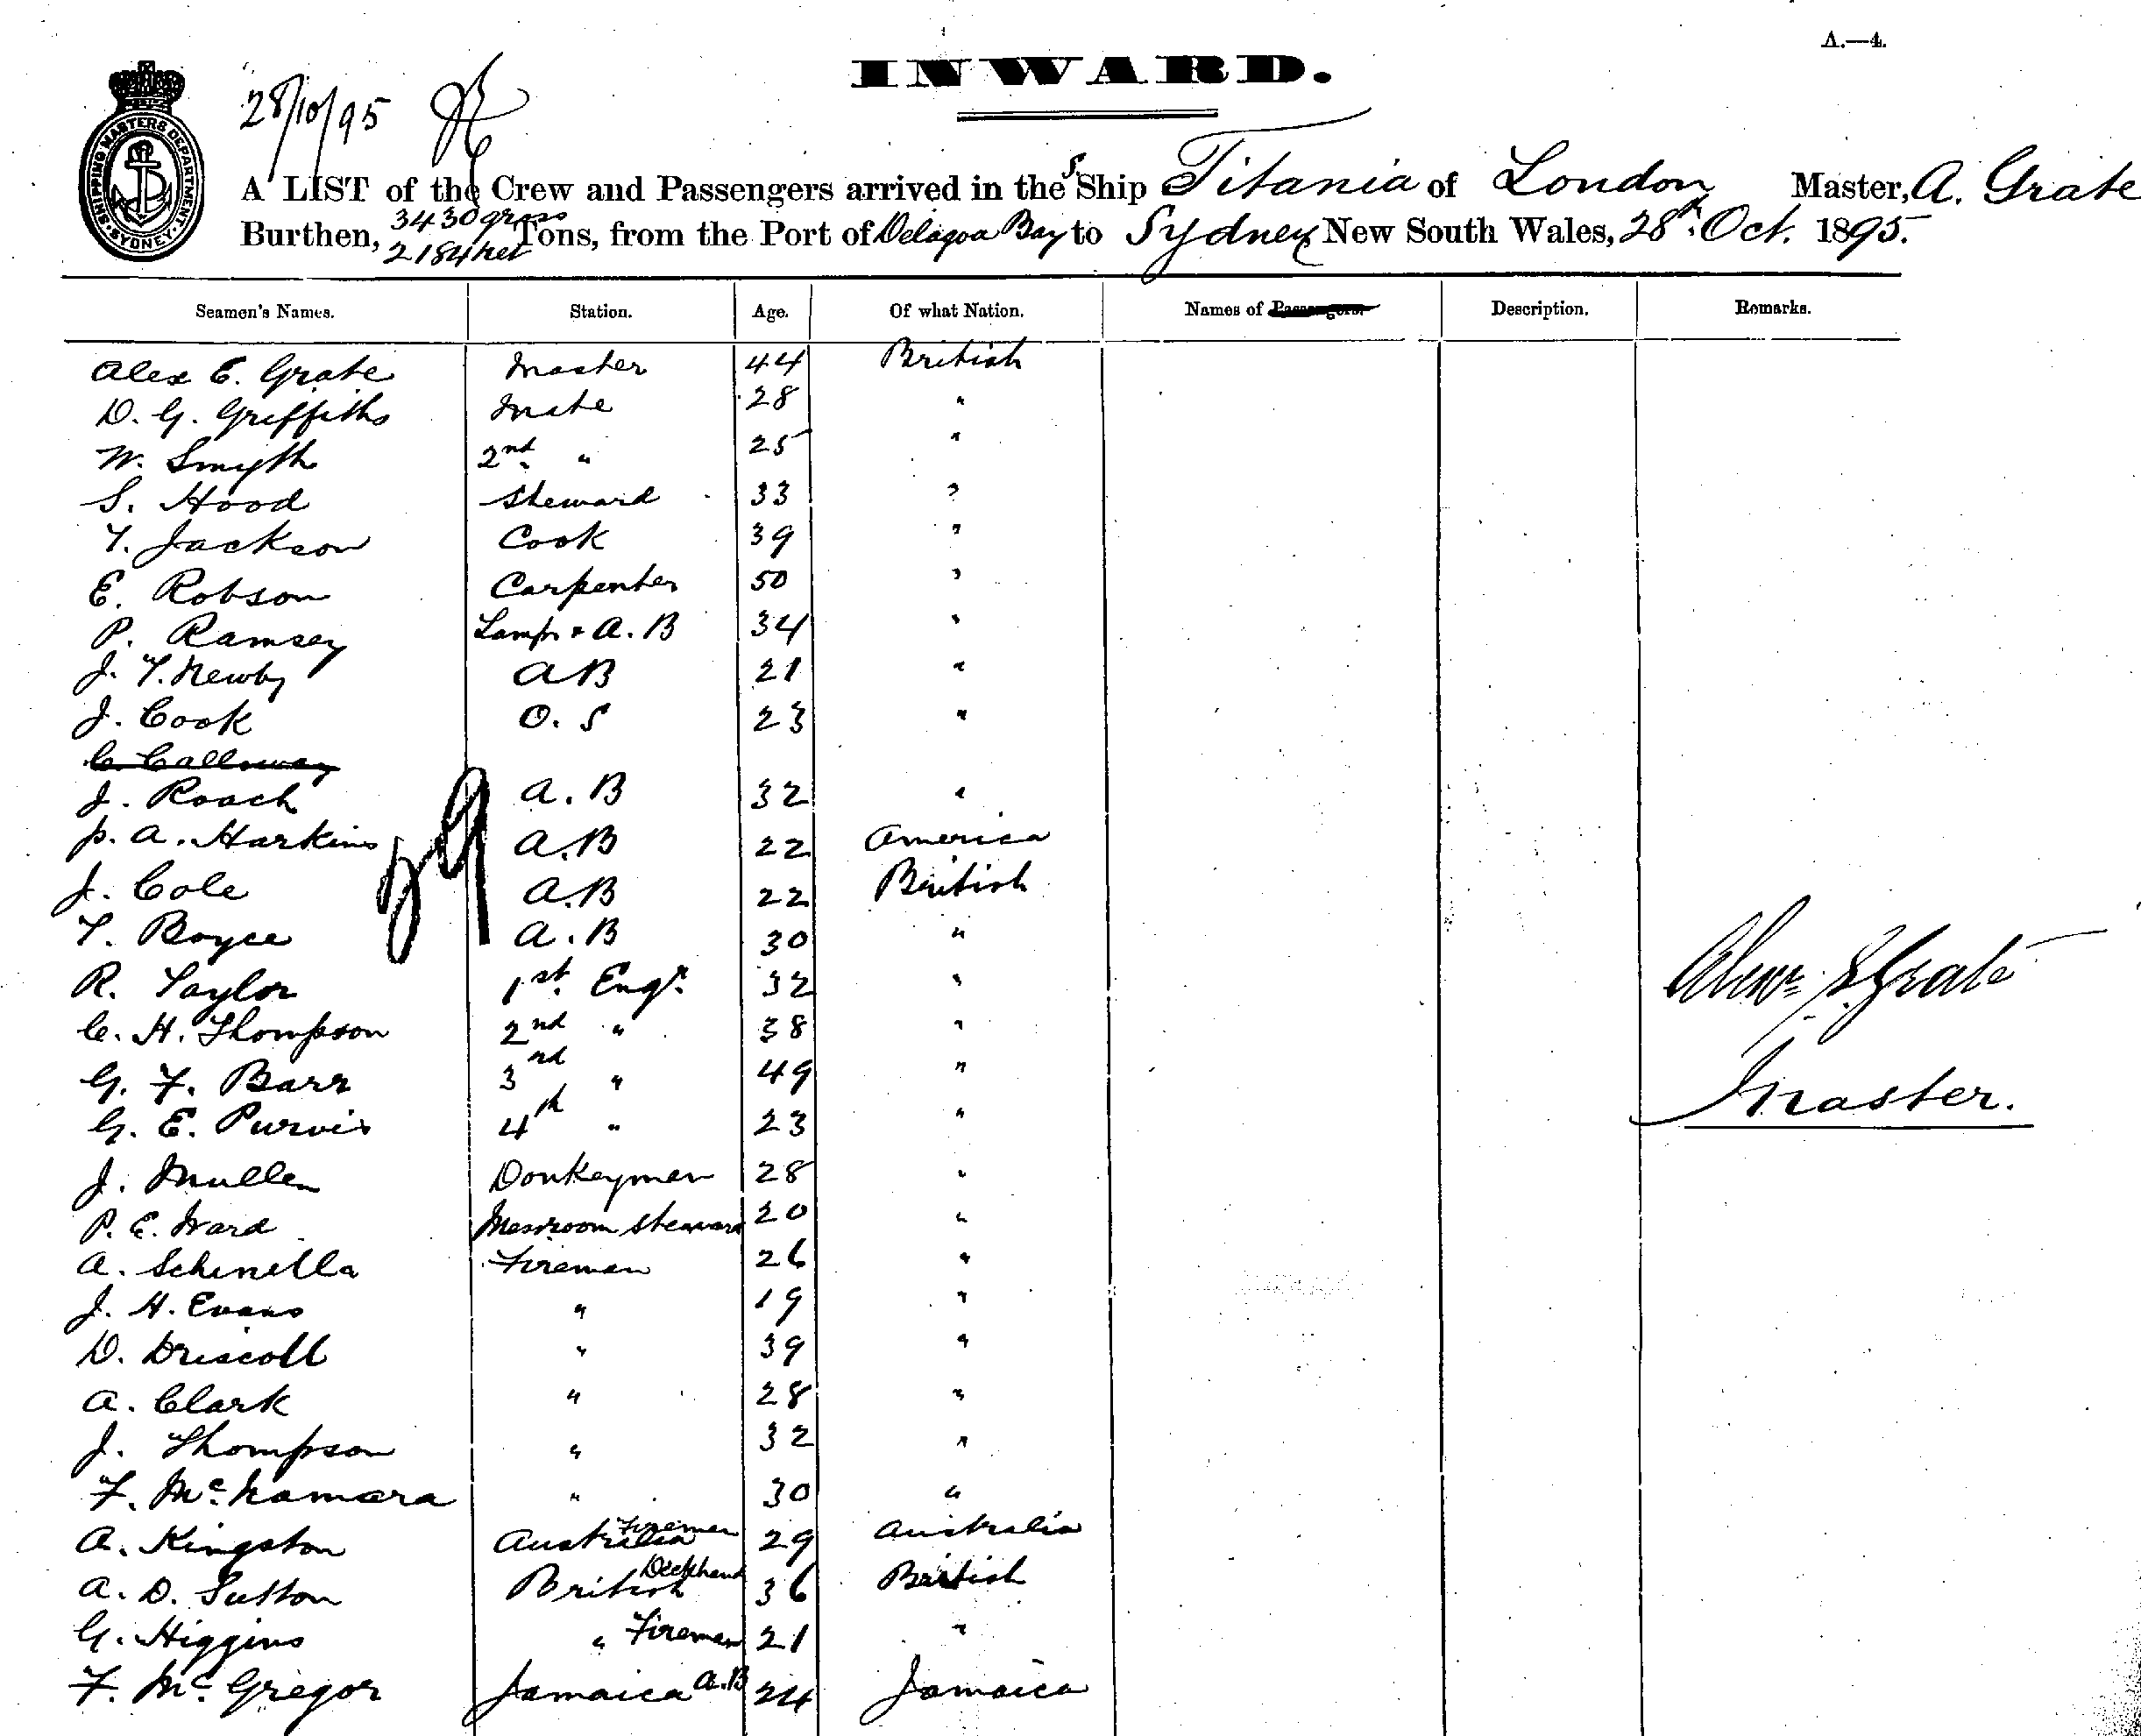 A.—4.
INWARD.
28/10/95
SHIPPING MASTERS DEPARTMENT
SYDNEY
A LIST of the Crew and Passengers arrived in the S Ship Titania of London Master, A. Grate
Burthen, 3430 gross 2184 net Tons, from the Port of Delagoa Bay to Sydney New South Wales, 28th. Oct. 1895.
Seamen's Names. Station. Age. Of what Nation. Names of Passengers. Description. Remarks.
Alex E. Grate Master 44 British
D. G. Griffiths Mate 28 "
W. Smyth 2nd. " 25 "
S. Hood Steward 33 "
T. Jackson Cook 39 "
E. Robson Carpenter 50 "
P. Ramsey Lamps & A.B 34 "
J. T. Newby AB 21 "
J. Cook O.S 23 "
C. Calloway
J. Roach A.B 32 "
P. A. Harkins A.B 22 America
J. Cole A.B 22 British
T. Boyce A.B 30 "
R. Taylor 1st. Engr. 32 "
C. H. Thompson 2nd " 38 "
G. F. Barr 3rd " 49 "
G. E. Purvis 4th " 23 "
J. Mullen Donkeyman 28 "
P. E. Ward Messroom Steward 20 "
A. Schinella Fireman 26 "
J. H. Evans " 19 "
D. Driscoll " 39 "
A. Clark " 28 "
J. Thompson " 32 "
F. McNamara " 30 "
A. Kingston Australia Fireman 29 Australia
A. D. Sutton British Deckhand 36 British
G. Higgins " Fireman 21 "
F. McGregor Jamaica A.B 24 Jamaica
Grate
Master.